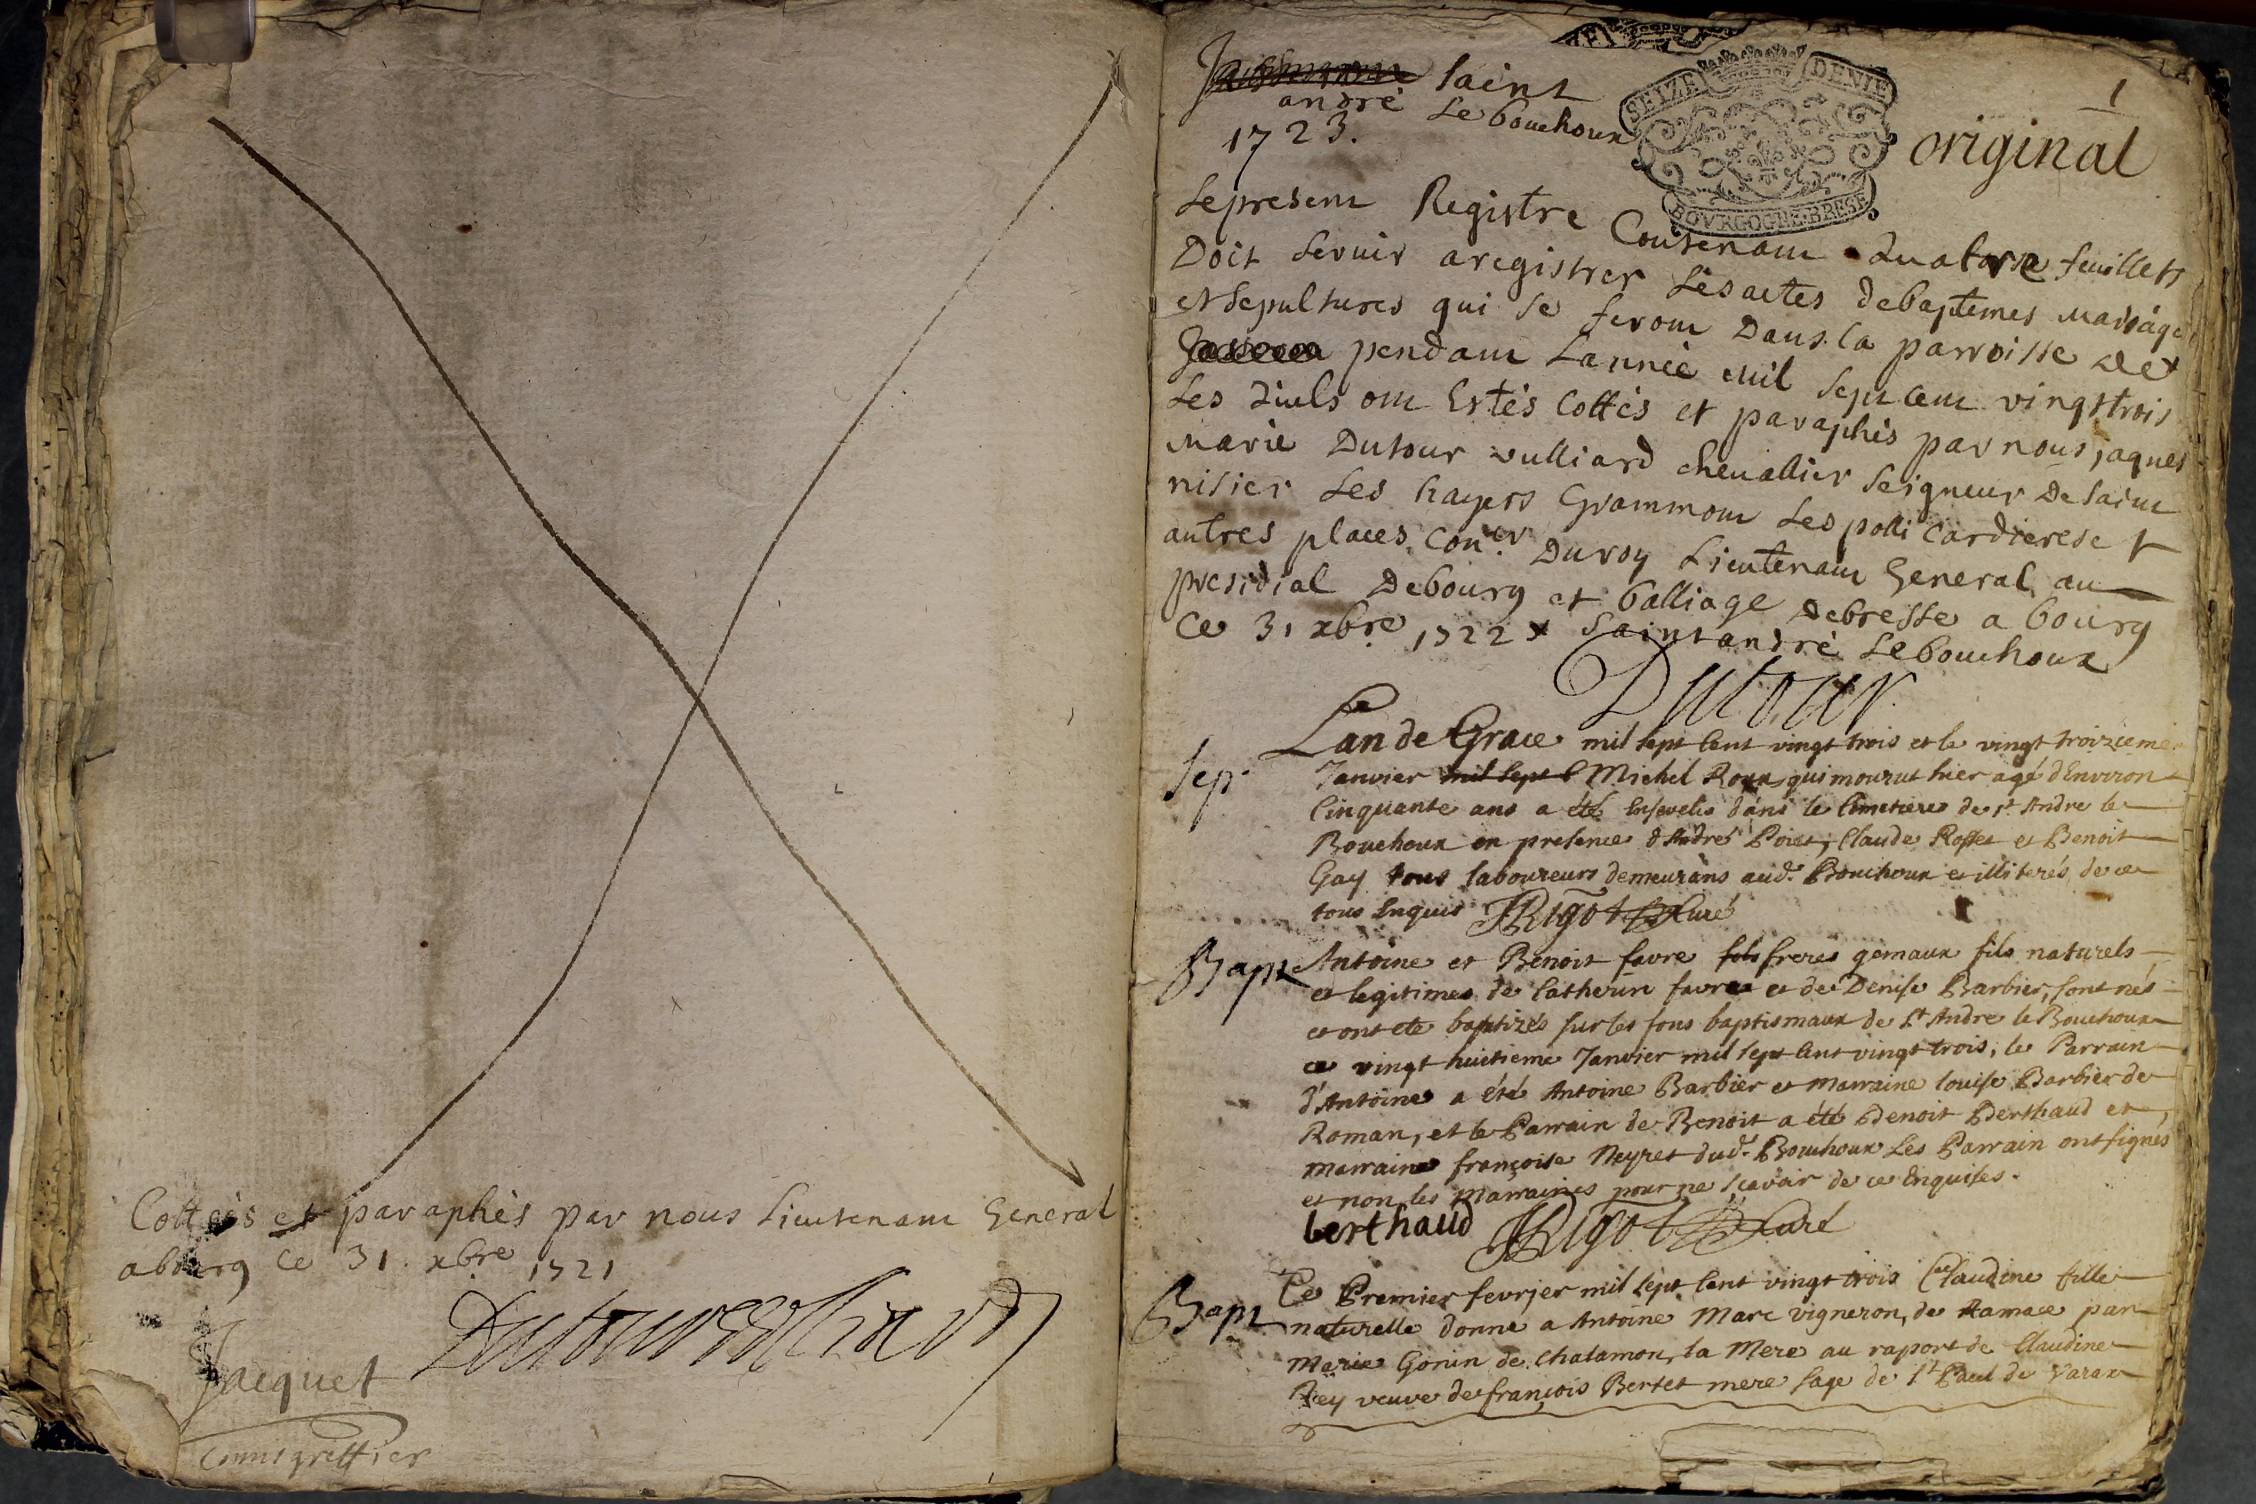 Cottées et paraphés par nous Lieutenant General
abourg ce 31 xbre 1721
Jacquet
Commis greffier
saint
andré Le bouchoux
1723.
SEIZE DENIE
BOVRGOGNE BRESE
1
original
Le present Registre Contenant quatorze feuillets
Doit servir aregistrer Les actes debaptemes mariages
et sepultures qui se feront Dans la parroisse de x
pendant Lannée mil sept cent vingt trois
Les quels ont Estés Cottés et paraphés par nous jaques
marie Dutour vulliard chevallier Seigneur De saint
nisier Les hayes Grammont Les polli cardieres et
autres places Coner Duroy Lieutenant General au
presidial Debourg et balliage debresse a bourg
Ce 31 xbre 1722 x Saint andré Le bouchoux
Dutour
Sep.
L'an de Grace mil sept cent vingt trois et le vingt troizieme
Janvier mil sept c Michel Roux qui mourut hier agé d'Environ
Cinquante ans a été Ensevelis dans le Cimetiere de st Andre le
Bouchoux en presence d'André Poiet, Claude Rosset et Benoit
Gay tous laboureurs demeurans aud. Bouchoux et illiterés de ce
tous Enquis JRigot Curé
Bapt
Antoine et Benoit favre fols freres gemaux fils naturels
et legitimes de Catherin favre et de Denise Barbier, sont nés
et ont ete baptizés sur les fons baptismaux de St Andre le Bouchoux
ce vingt huitieme Janvier mil sept cent vingt trois, le Parrain
d'Antoine a été Antoine Barbier et marraine louise Barbier de
Roman, et le Parrain de Benoit a été Benoit Berthaud et
marraine françoise Neyret dud. Bouchoux Les Parrain ont signés
et non les marraines pour ne sçavoir de ce Enquises.
berthaud JRigot Curé
Bapt
Ce Premier fevrier mil sept cent vingt trois Claudine fille
naturelle donne a Antoine Marc vigneron, de Ramace par
Marie Gonin de Chalamon, la Mere au raport de Claudine
Rey veuve de françois Bertet mere sage de st Paul de Varax